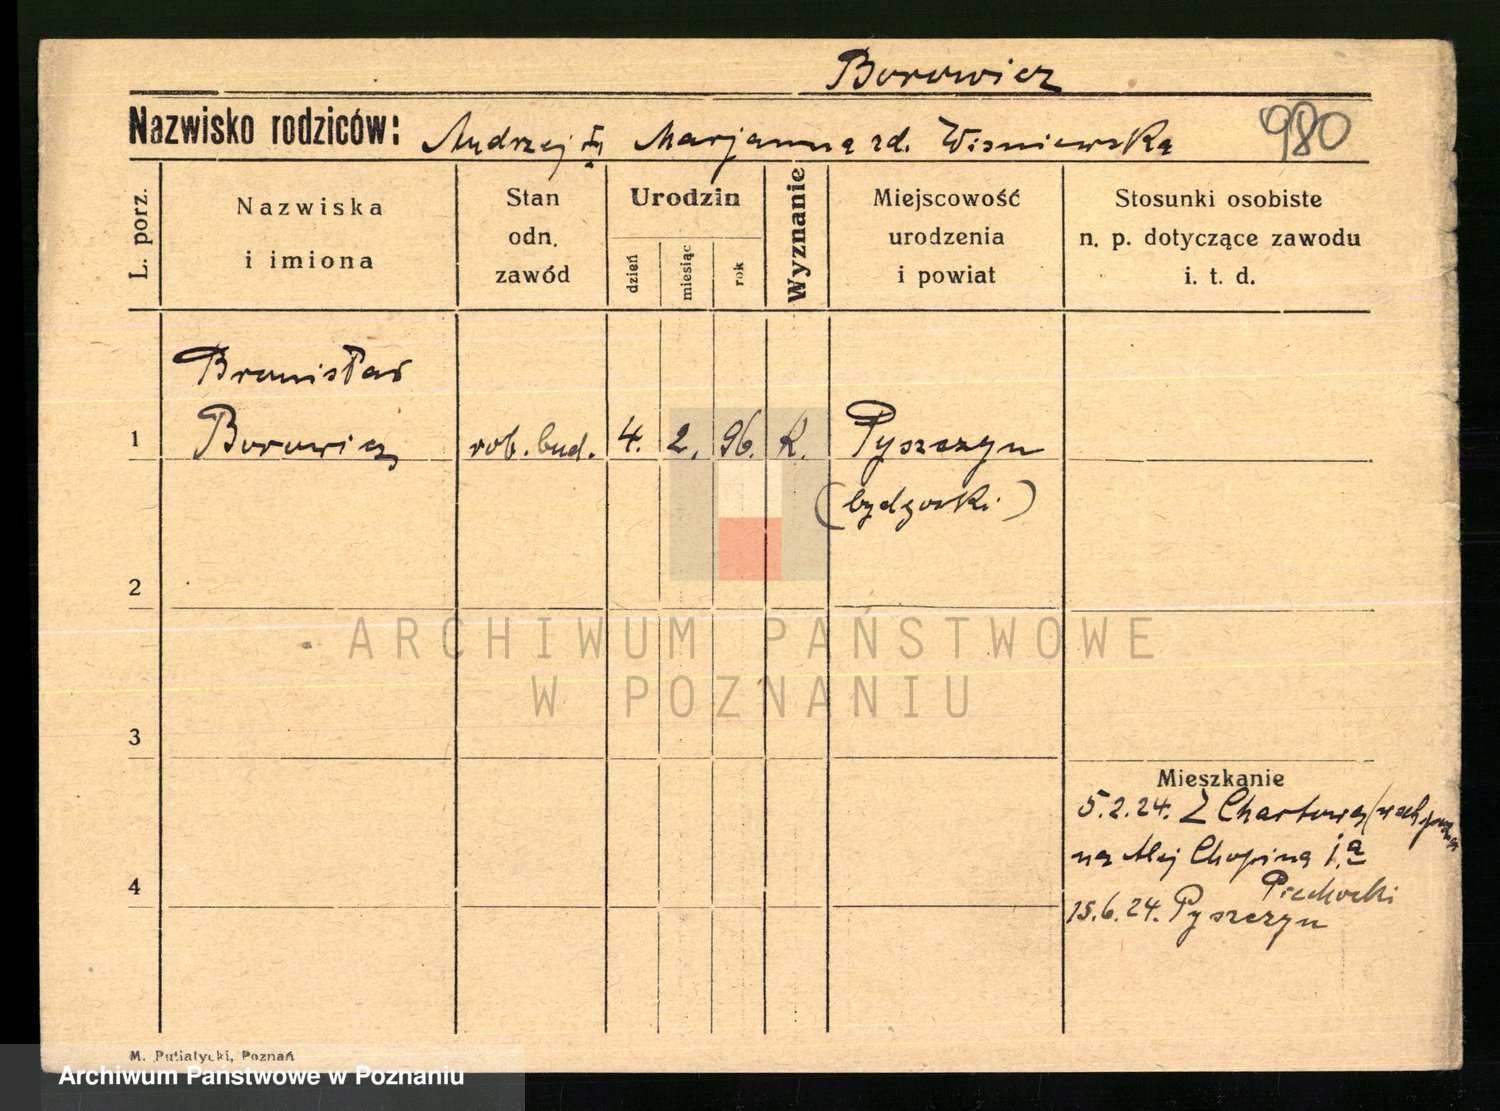 Borowicz
Nazwisko rodziców: Andrzej i Marjanna zd. Wisniewska 980
L. porz.
Nazwiska
i imiona
Stan
odn.
zawód
Urodzin
dzień
miesiąc
rok
Wyznanie
Miejscowość
urodzenia
i powiat
Stosunki osobiste
n. p. dotyczące zawodu
i. t. d.
Bronisław
1 Borowicz rob. bud. 4. 2. 96. K. Pyszczyn
(bydgoski)
2
ARCHIWUM PAŃSTWOWE
W POZNANIU
3
Mieszkanie
5.2.24. Z Chartowa
na Alej Chopina 1a
4
Piechocki
15.6.24. Pyszczyn
M. Putiatycki, Poznań
Archiwum Państwowe w Poznaniu